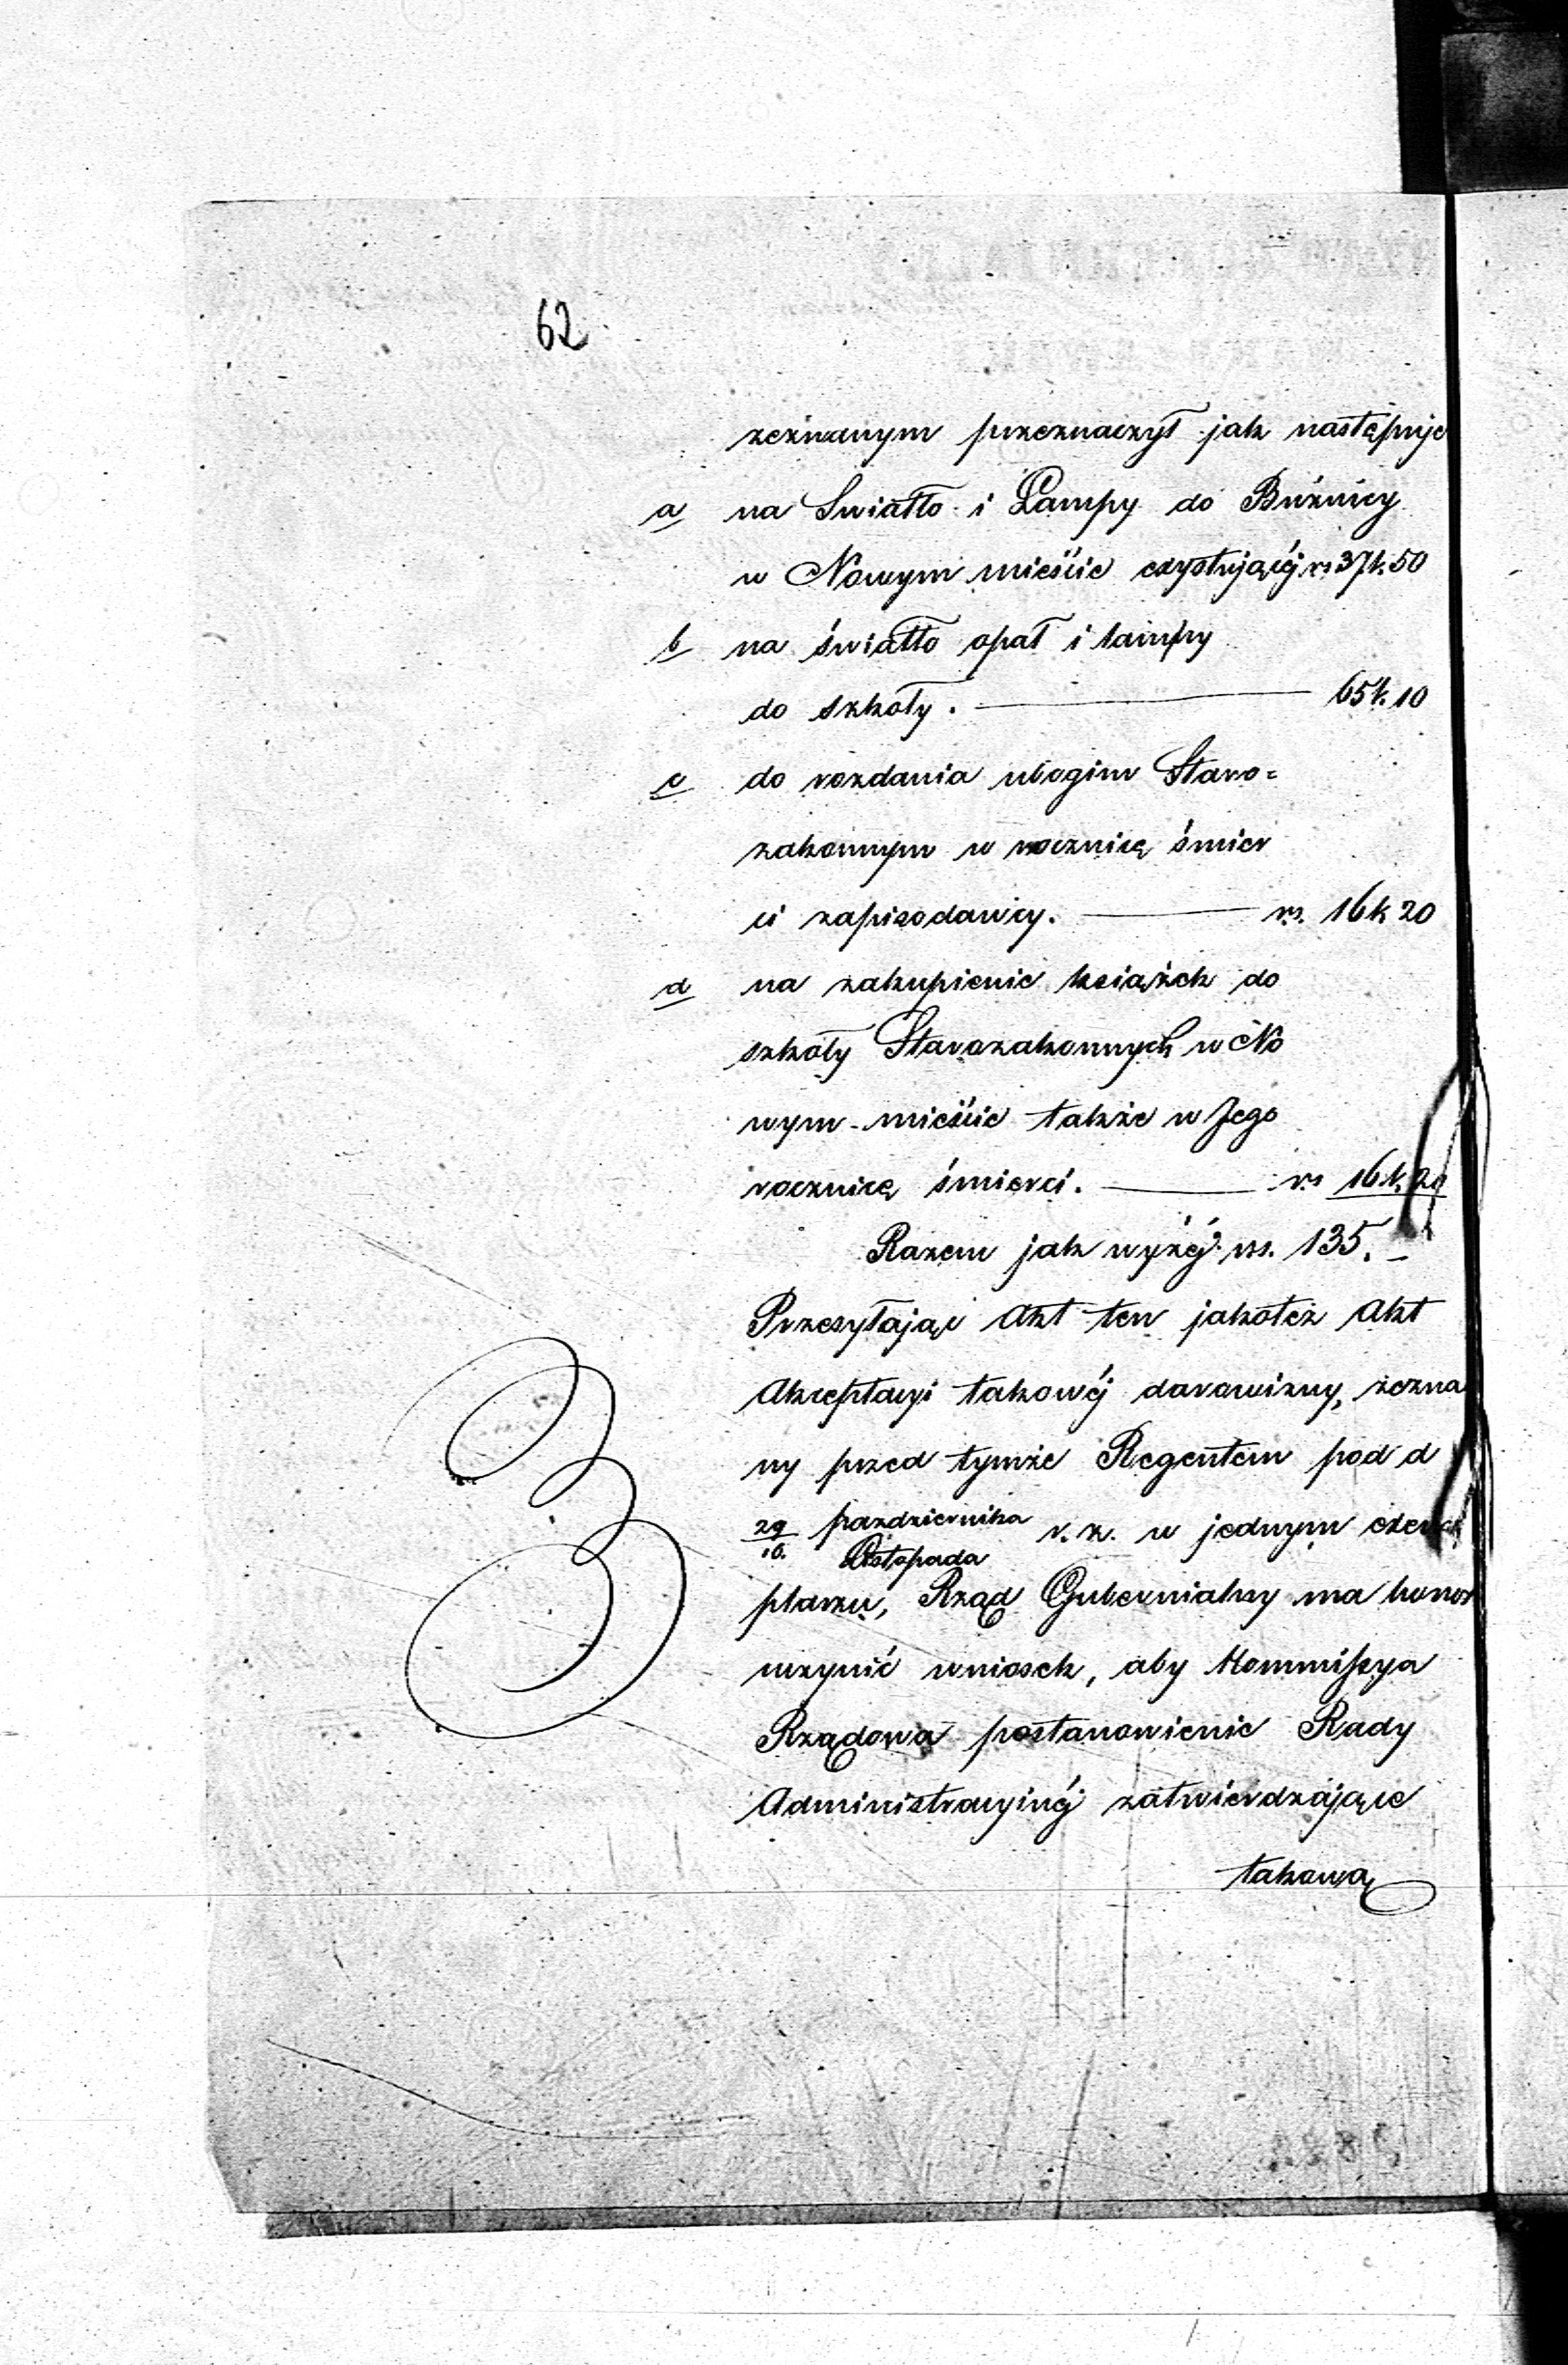 62
zeznanym przeznaczył jak następuje
a na Swiatło i Lampy do Bużnicy
w Nowym mieście exystującéj rs. 37 k. 50
b na światło opał i lampy
do szkoły. 65 k. 10
c do rozdania ubogim Staro=
zakonnym w rocznicę śmier
ci zapisodawcy. rs. 16 k 20
d na zakupienie książek do
szkoły Starozakonnych w No
wym-mieście także w Jego
rocznicę śmierci. rs 16 k. 20
Razem jak wyżéj rs. 135. –
Przesyłając Akt ten jakoteż Akt
Akceptacyi takowéj darowizny, zezna
ny przed tymże Regentem pod d
29/10. pazdziernika/Listopada r. z. w jednym exem
plarzu, Rząd Gubernialny ma honor
uczynić wniosek, aby Kommissya
Rządowa postanowienie Rady
Administracyinéj zatwierdzające
takową